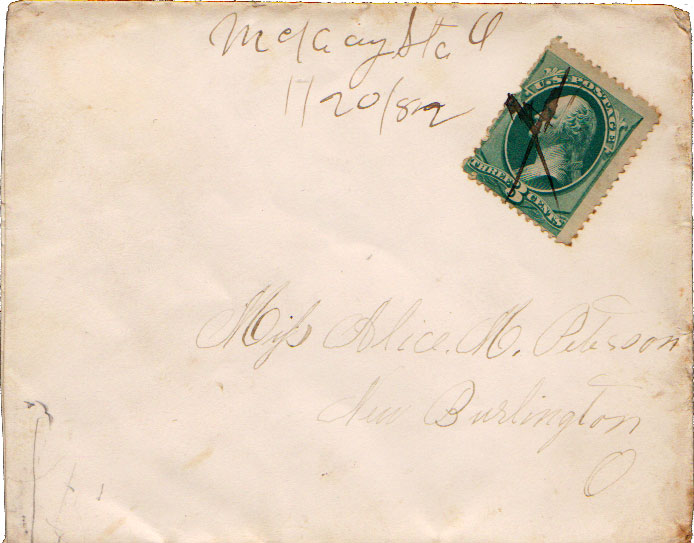 McKay Sta O
1/20/82
U.S. POSTAGE
THREE 3 CENTS
Miss Alice. M. Peterson
New Burlington
O